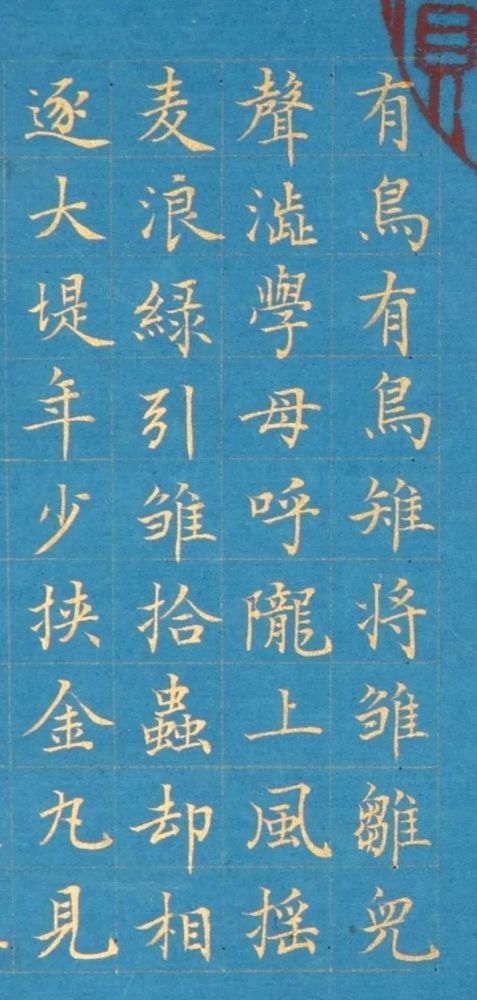 有鳥有鳥雉将雏雛兒
聲澁學母呼隴上風揺
麦浪緑引雏拾蟲却相
逐大堤年少挾金丸見